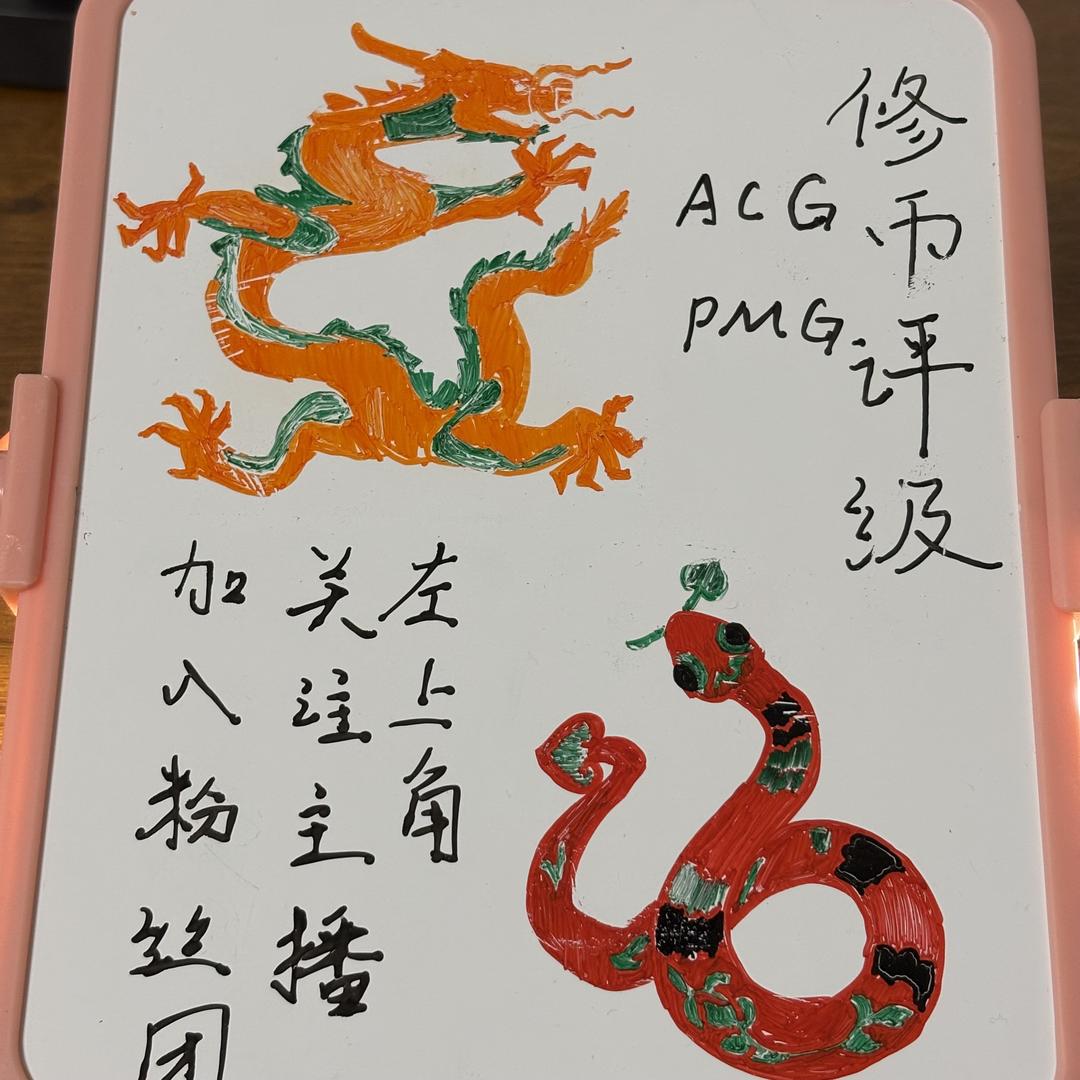 修币评级
ACG
PMG
左上角
关注主播
加入粉丝团